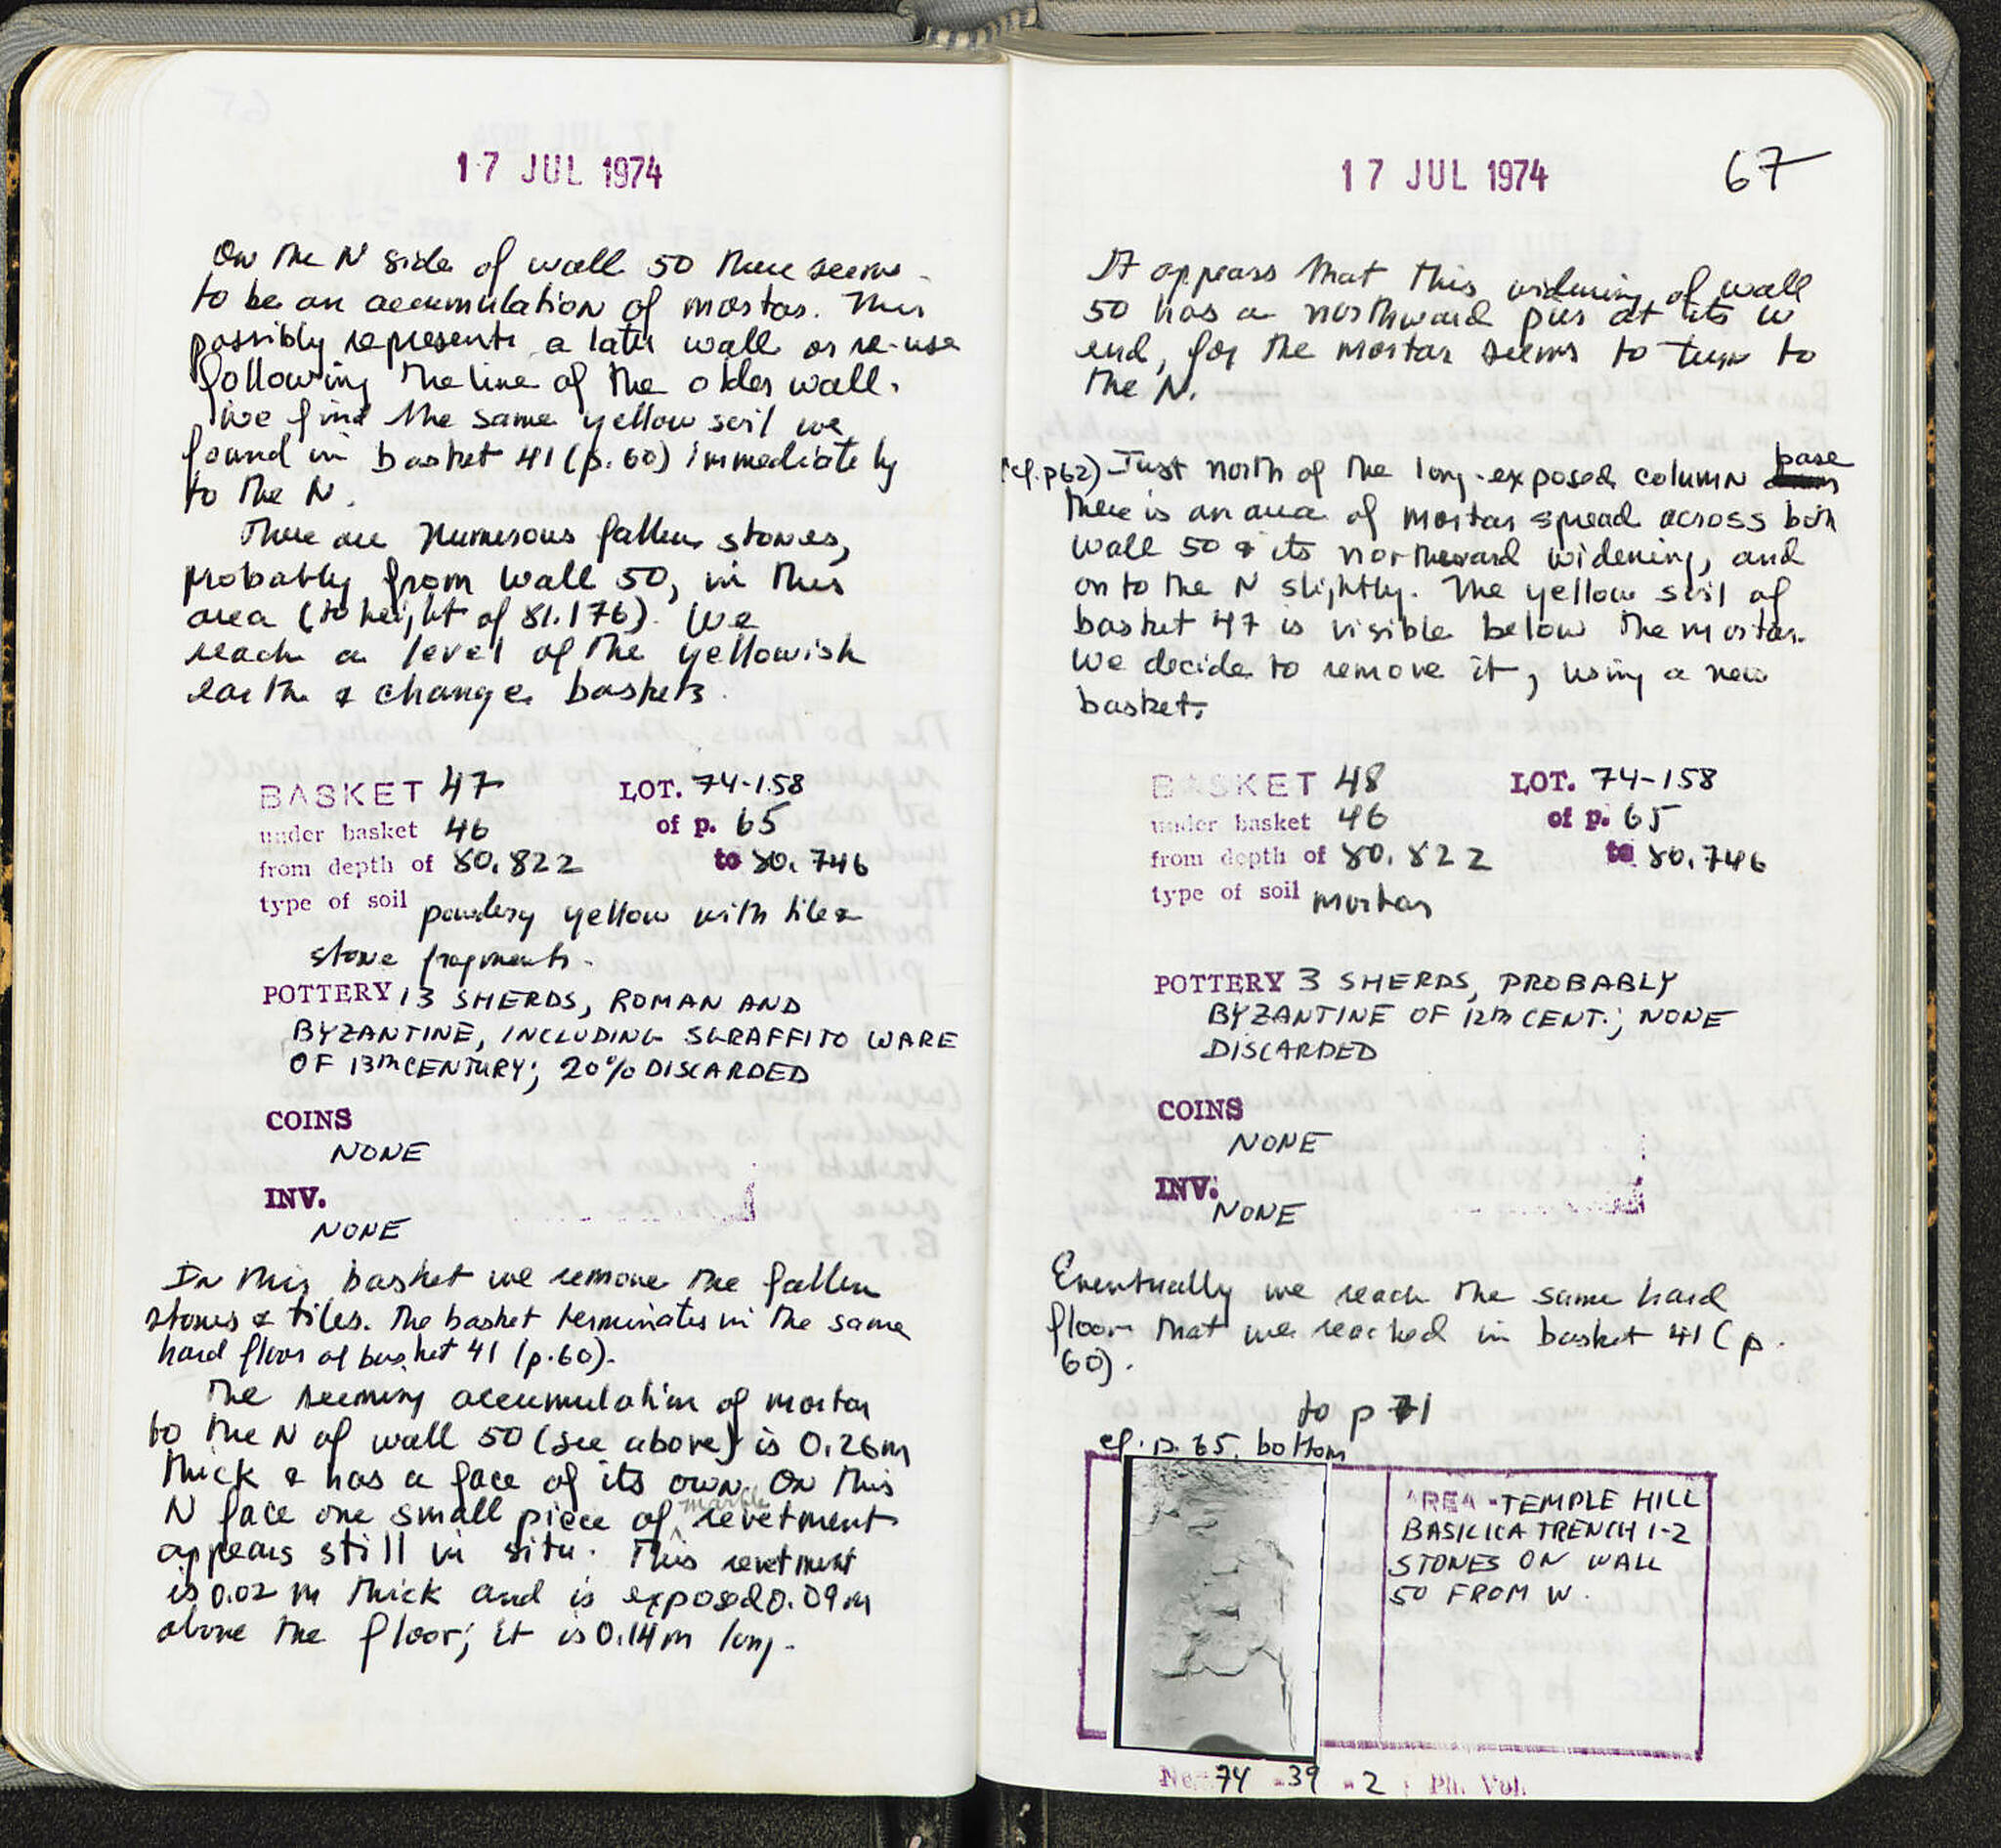 17 JUL 1974
On the N side of wall 50 there seems
to be an accumulation of mortar. This
possibly represents a later wall or re-use
following the line of the older wall.
We find the same yellow soil we
found in basket 41 (p. 60) immediately
to the N.
There are numerous fallen stones,
probably from wall 50, in this
area (to height of 81.176). We
reach a level of the yellowish
earth & change baskets.
BASKET 47 LOT. 74-158
under basket 46 of p. 65
from depth of 80.822 to 80.746
type of soil powdery yellow with tile &
stone fragments.
POTTERY 13 SHERDS, ROMAN AND
BYZANTINE, INCLUDING SGRAFFITO WARE
OF 13th CENTURY; 20% DISCARDED
COINS
NONE
INV.
NONE
In this basket we remove the fallen
stones & tiles. The basket terminates in the same
hard floor of basket 41 (p.60).
The seeming accumulation of mortar
to the N of wall 50 (see above) is 0.26m
thick & has a face of its own. On this
N face one small piece of marble revetment
appears still in situ. This revetment
is 0.02 m thick and is exposed 0.09m
above the floor; it is 0.14m long.
17 JUL 1974 67
It appears that this widening of wall
50 has a northward pier at its W
end, for the mortar seems to turn to
the N.
(cf. p62) Just north of the long-exposed column base
there is an area of mortar spread across both
wall 50 & its northward widening, and
on to the N slightly. The yellow soil of
basket 47 is visible below the mortar.
We decide to remove it, using a new
basket.
BASKET 48 LOT. 74-158
under basket 46 of p. 65
from depth of 80.822 to 80.746
type of soil mortar
POTTERY 3 SHERDS, PROBABLY
BYZANTINE OF 12th CENT.; NONE
DISCARDED
COINS
NONE
INV.
NONE
Eventually we reach the same hard
floor that we reached in basket 41 (p.
60).
to p 71
cf. p. 65, bottom
AREA - TEMPLE HILL
BASILICA TRENCH 1-2
STONES ON WALL
50 FROM W.
No. 74 - 39 - 2 : Ph. Vol.